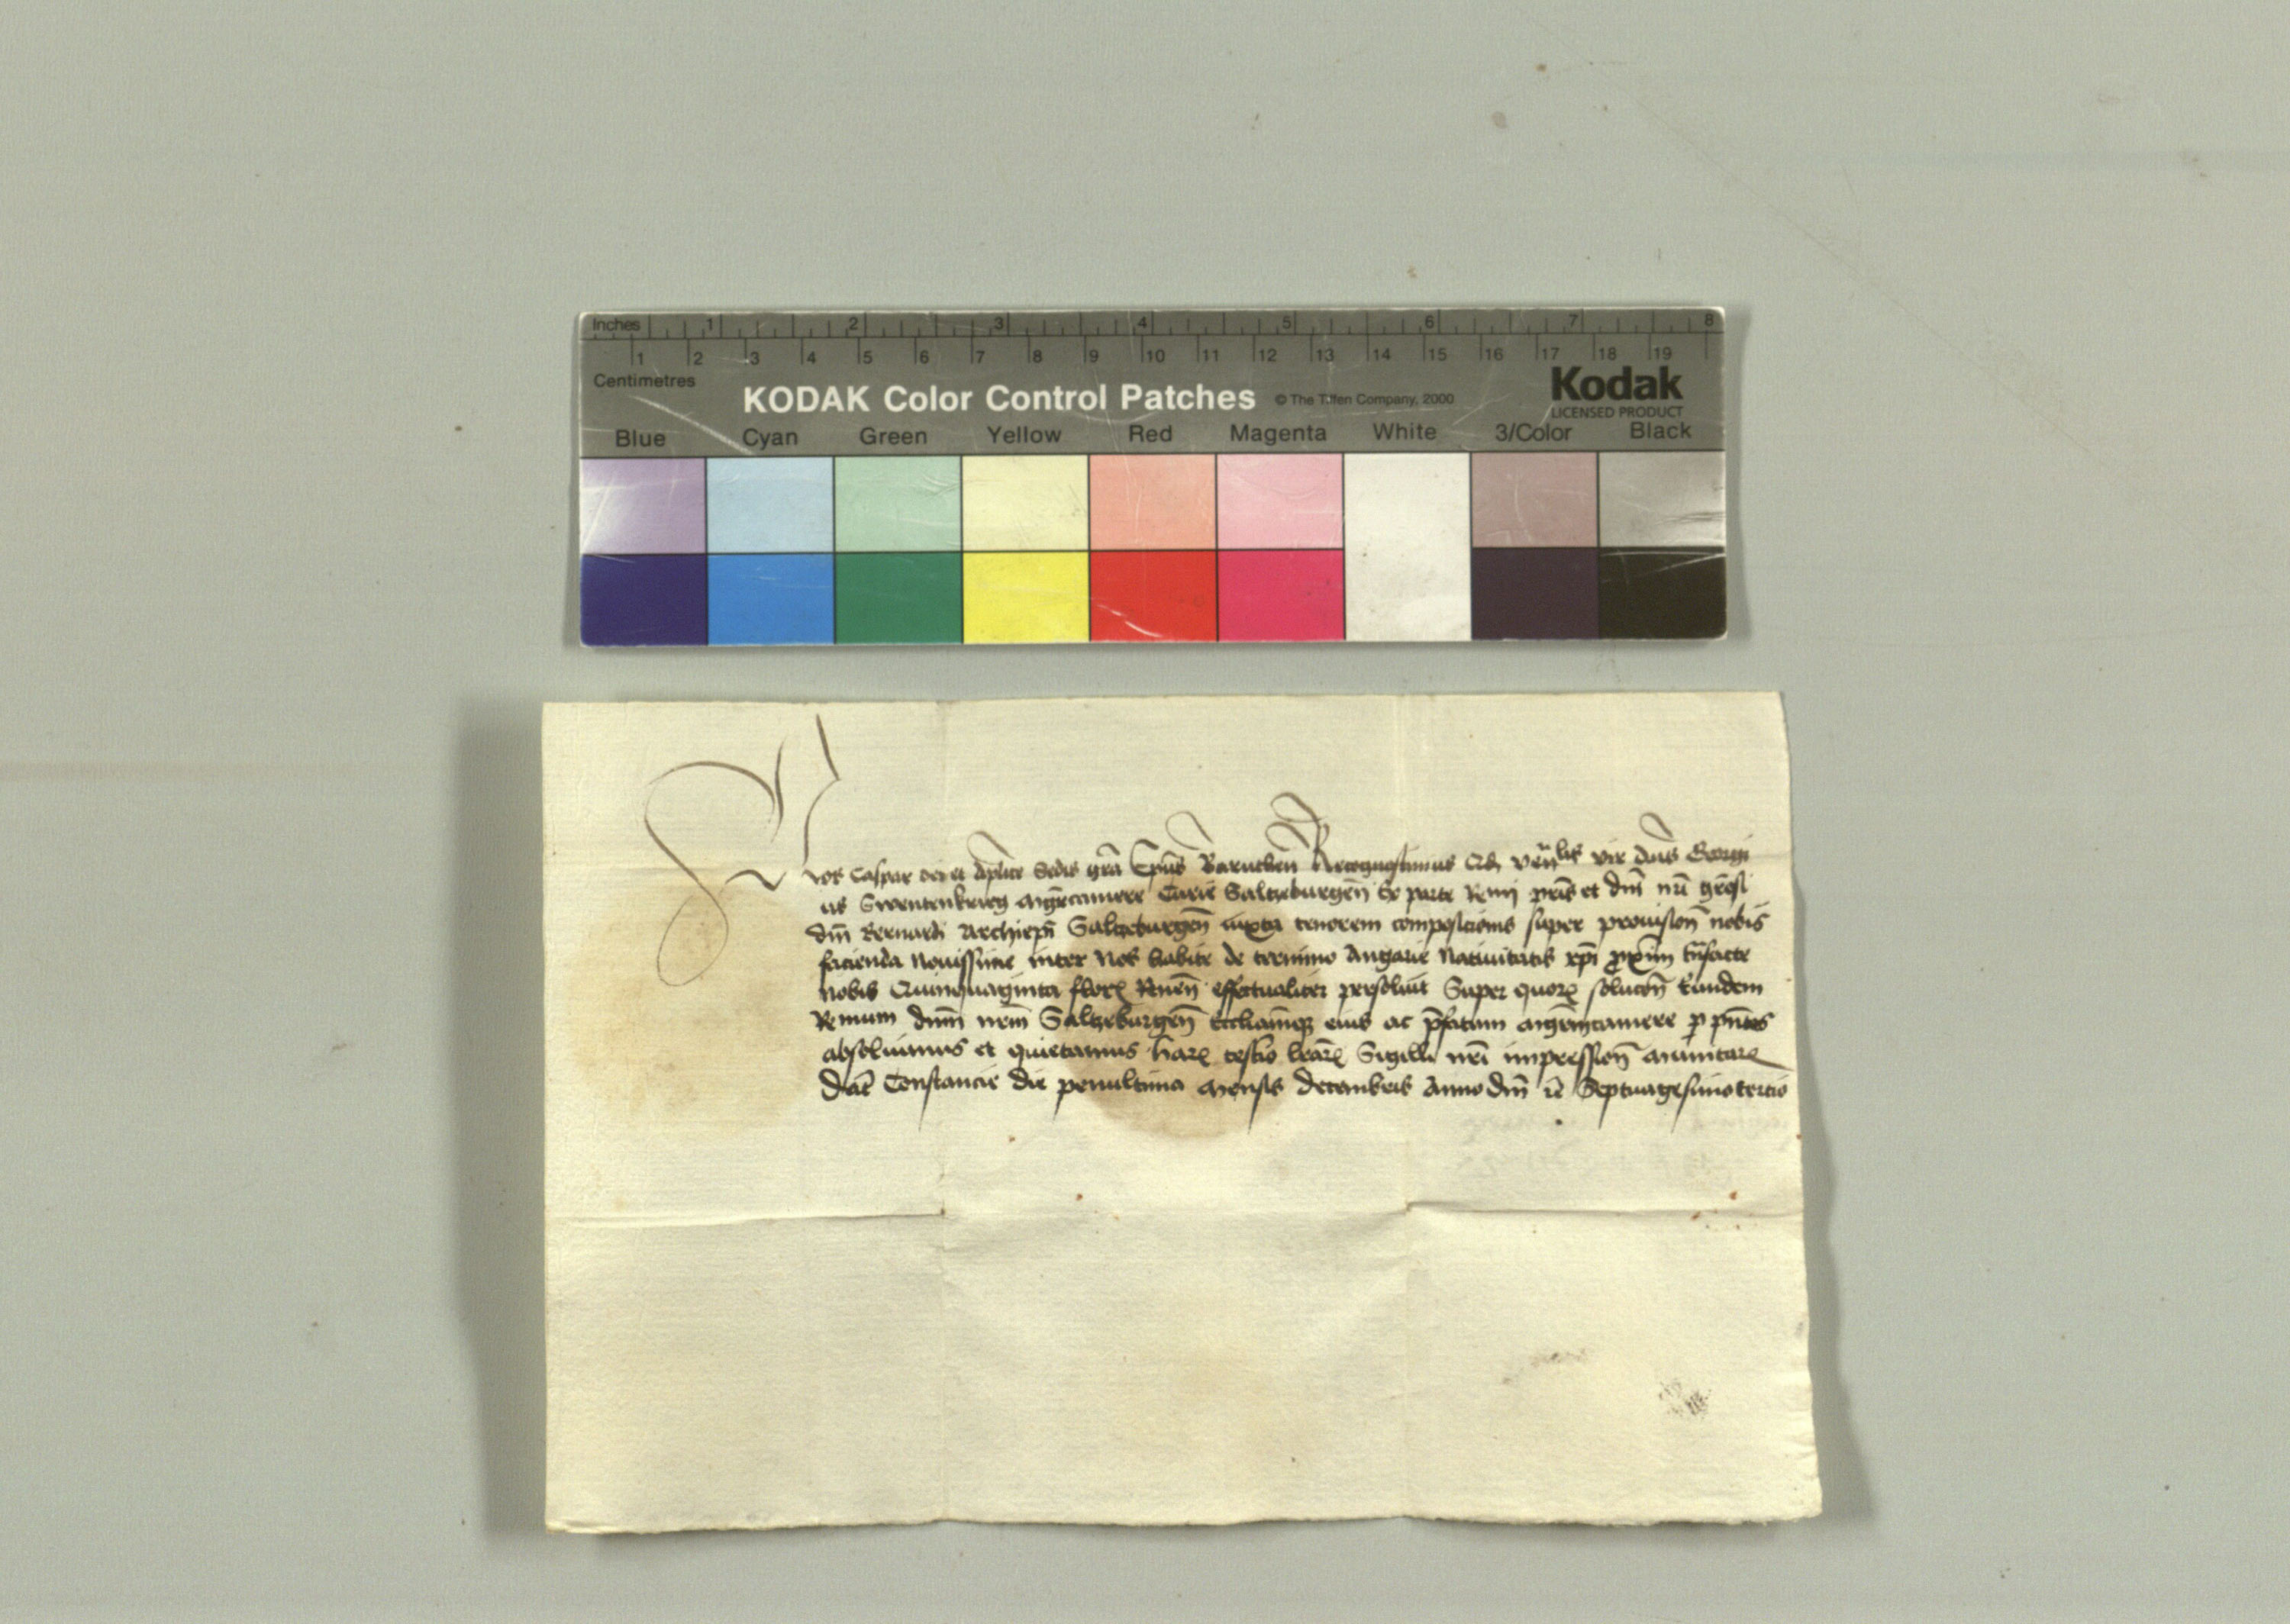 Inches 1 2 3 4 5 6 7 8
1 2 3 4 5 6 7 8 9 10 11 12 13 14 15 16 17 18 19
Centimetres
KODAK Color Control Patches © The Tiffen Company, 2000 Kodak
LICENSED PRODUCT
Blue Cyan Green Yellow Red Magenta White 3/Color Black
Nos Caspar dei et aplice Sedis gra Epus Barucken Recognoscimus Qd venlis vir dns Georgi
us Swentenkrieg mgrcamere Curie Saltzeburgen Ex parte Rmi pris et dni nri grosi
dni Bernardi Archiepi Saltzeburgen iuxta tenorem compositionis super prouision nobis
facienda Nouissime inter Nos habite de termino Angarie Natiuitatis xpi
Nobis Quinquaginta flor Renen effectualiter persoluit Super quor solucon Eundem
Rmum dnm nrm Saltzeburgen Eccliamque eius ac pfatum mgrmcamere p pntes
absoluimus et quietamus har testio lrar Sigilli nri impression munitar
Dat Constancie die penultima mensis decembris Anno dni Septuagesimotertio